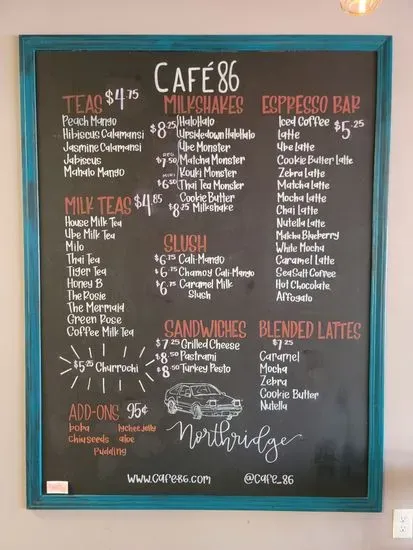 CAFÉ 86
TEAS $4.75
Peach Mango
Hibiscus Calamansi
Jasmine Calamansi
Jabiscus
Mahalo Mango
MILK TEAS $4.85
House Milk Tea
Ube Milk Tea
Milo
Thai Tea
Tiger Tea
Honey B
The Rosie
The Mermaid
Green Rose
Coffee Milk Tea
$5.25 Churrochi
ADD-ONS 95¢
boba lychee jelly
chia seeds aloe
Pudding
MILKSHAKES
HaloHalo
$8.25 Upsidedown HaloHalo
Ube Monster
REG $7.50 Matcha Monster
Kouki Monster
MINI $6.50 Thai Tea Monster
Cookie Butter
$8.25 Milkshake
SLUSH
$6.75 Cali-Mango
$6.75 Chamoy Cali-Mango
$6.75 Caramel Milk
Slush
SANDWICHES
$7.25 Grilled Cheese
$8.50 Pastrami
$8.50 Turkey Pesto
ESPRESSO BAR
$5.25
Iced Coffee
Latte
Ube Latte
Cookie Butter Latte
Zebra Latte
Matcha Latte
Mocha Latte
Chai Latte
Nutella Latte
Matcha Blueberry
White Mocha
Caramel Latte
Sea Salt Coffee
Hot Chocolate
Affogato
BLENDED LATTES
$7.25
Caramel
Mocha
Zebra
Cookie Butter
Nutella
Northridge
www.cafe86.com @cafe_86